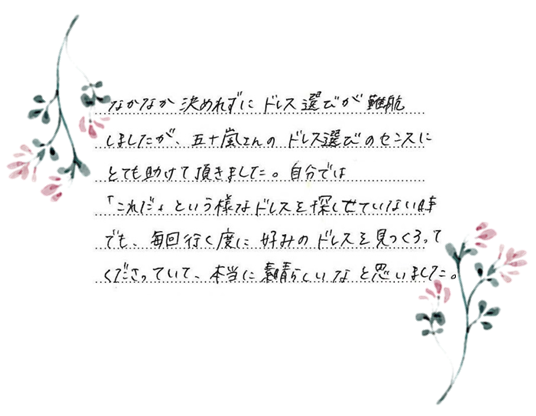 なかなか決めれずにドレス選びが難航
しましたが、五十嵐さんのドレス選びのセンスに
とても助けて頂きました。自分では
「これだ」という様なドレスを探しせていない時
でも、毎回行く度に好みのドレスを見つくろって
くださっていて、本当に素晴らしいなと思いました。